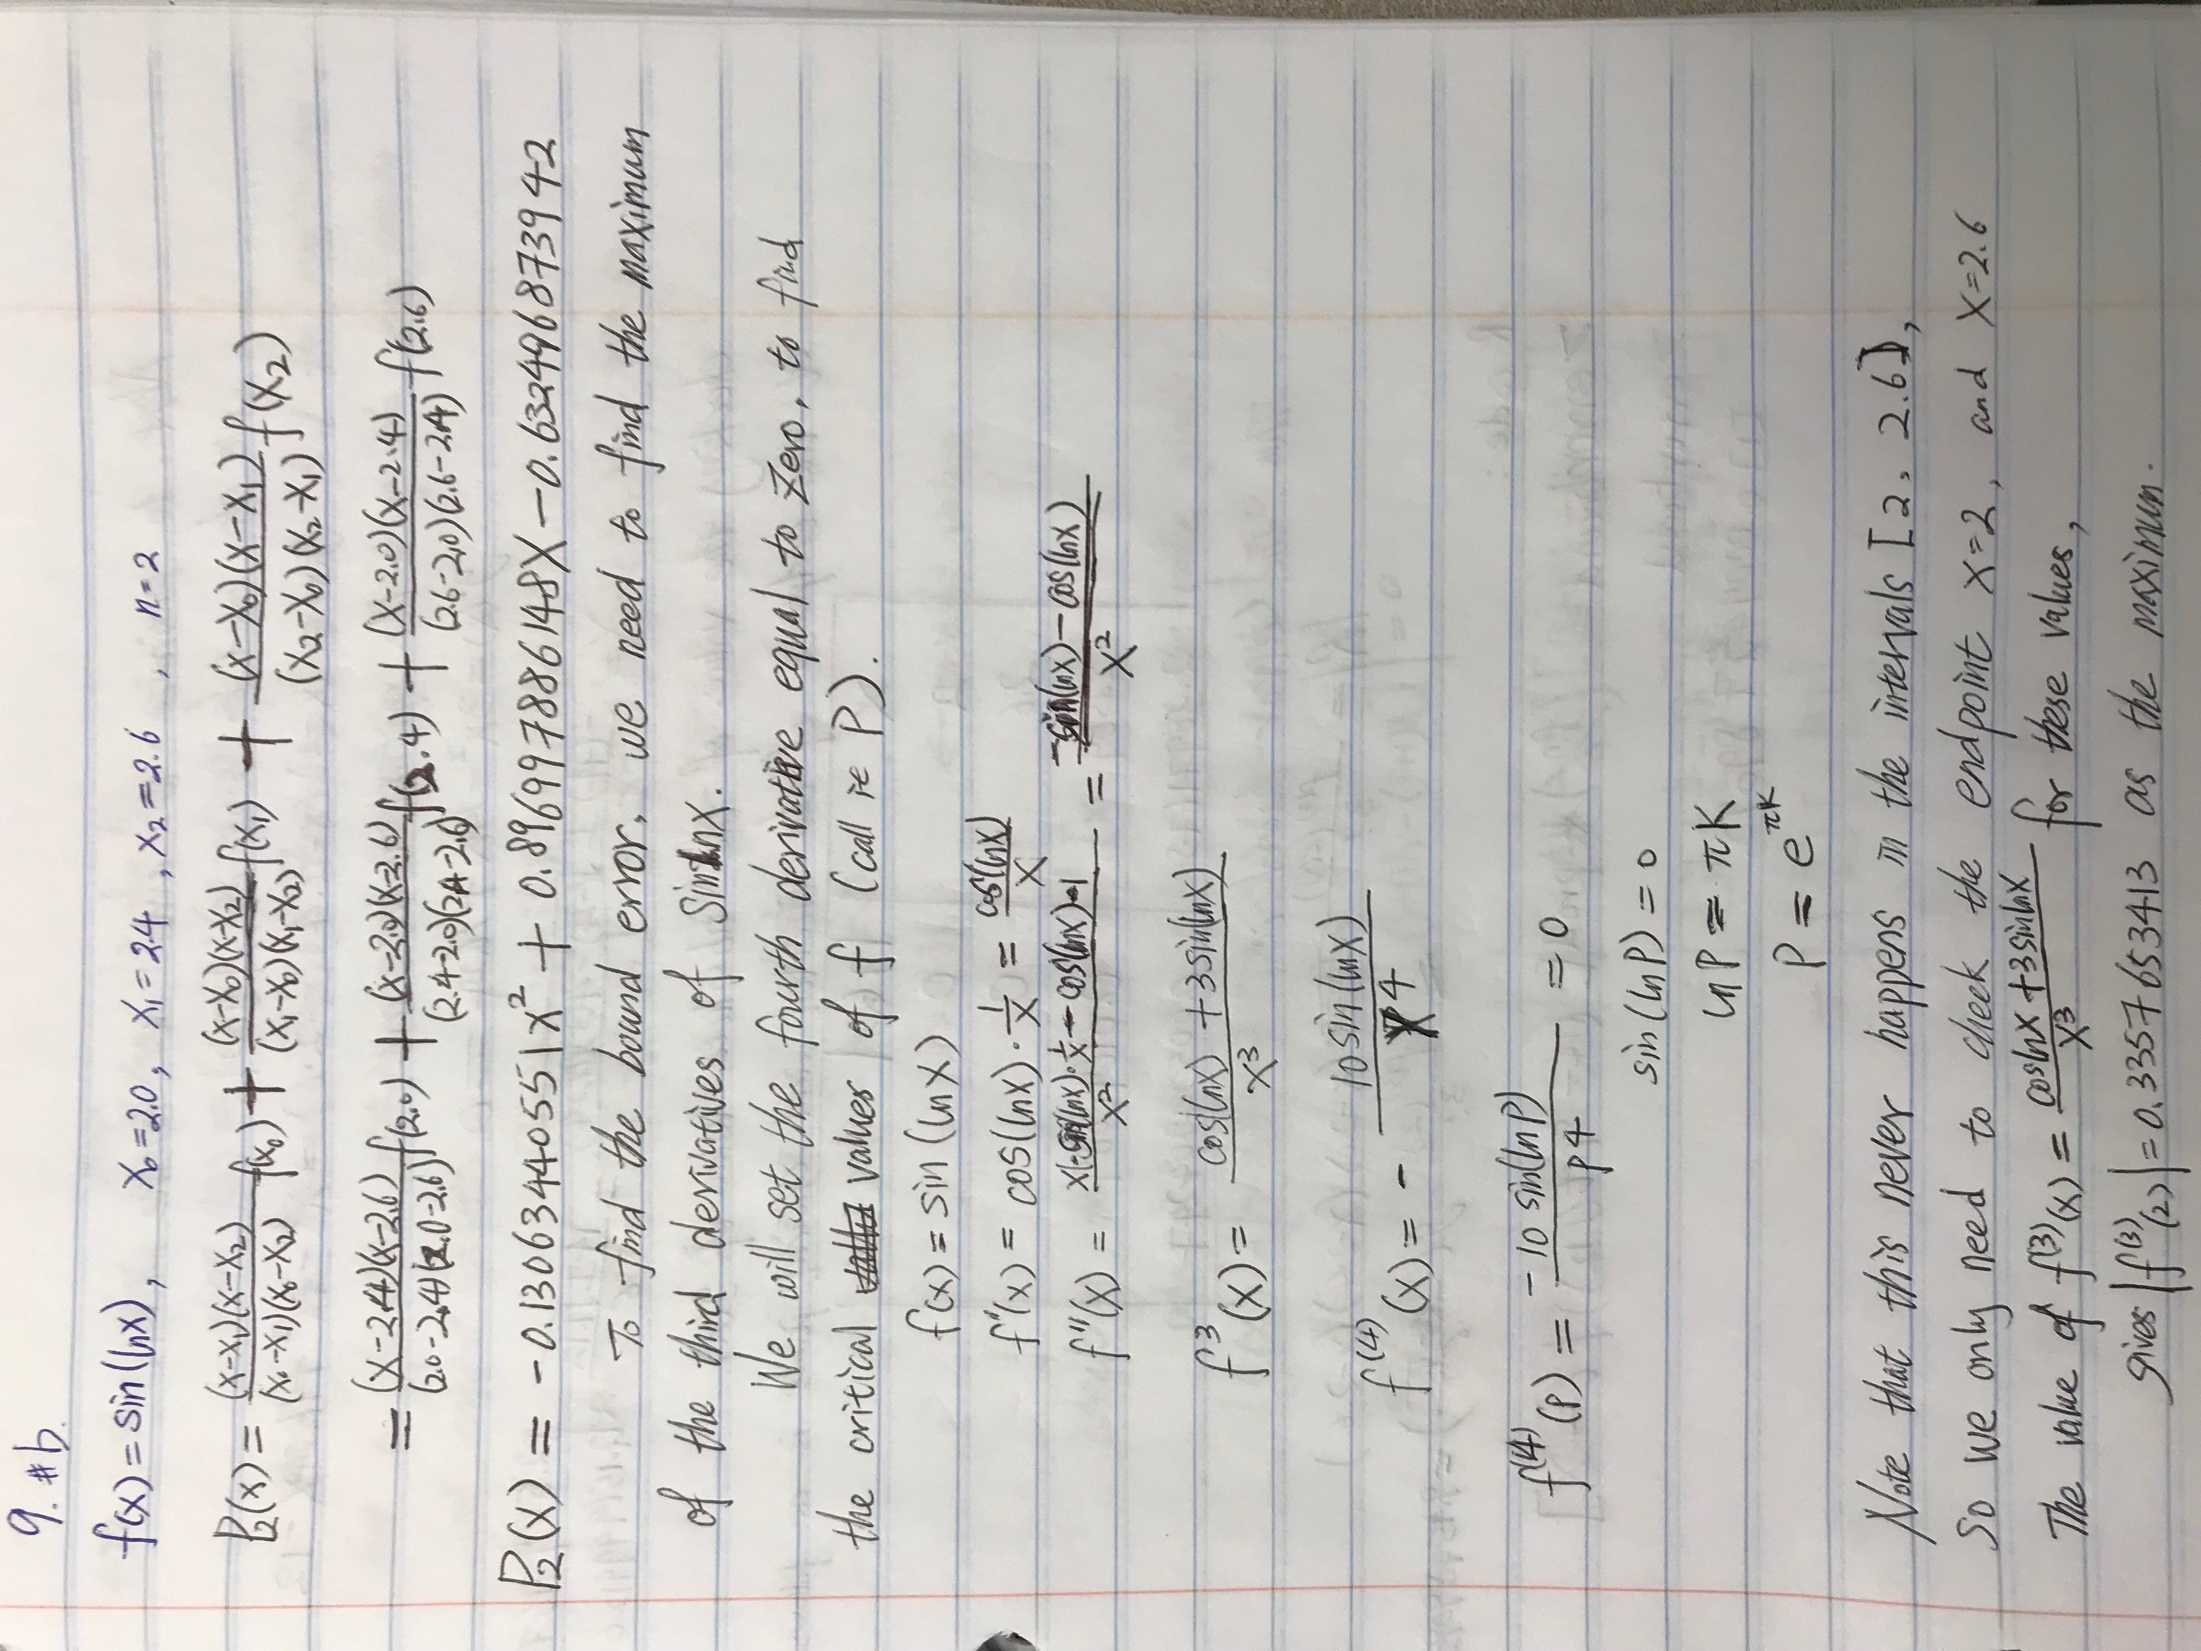 9. #b.
f(x) = sin(lnx), x₀=2.0, x₁=2.4, x₂=2.6, n=2
P₂(x) = (x-x₁)(x-x₂)/(x₀-x₁)(x₀-x₂) f(x₀) + (x-x₀)(x-x₂)/(x₁-x₀)(x₁-x₂) f(x₁) + (x-x₀)(x-x₁)/(x₂-x₀)(x₂-x₁) f(x₂)
= (x-2.4)(x-2.6)/(2.0-2.4)(2.0-2.6) f(2.0) + (x-2.0)(x-2.6)/(2.4-2.0)(2.4-2.6) f(2.4) + (x-2.0)(x-2.4)/(2.6-2.0)(2.6-2.4) f(2.6)
P₂(x) = -0.1306344055 1x² + 0.8969978861 48x - 0.6324968739 42
To find the bound error, we need to find the maximum
of the third derivatives of Sinlnx.
We will set the fourth derivative equal to zero, to find
the critical values of f (call it P).
f(x) = sin(lnx)
f'(x) = cos(lnx)·1/x = cos(lnx)/x
f''(x) = x(-sin(lnx)·1/x - cos(lnx)·1/x² = -sin(lnx) - cos(lnx)/x²
f³(x) = cos(lnx) + 3sin(lnx)/x³
f⁽⁴⁾(x) = - 10sin(lnx)/x4
f⁽⁴⁾(P) = -10 sin(lnP)/P4 = 0
sin(lnP) = 0
lnP = πK
P = e^πK
Note that this never happens in the intervals [2, 2.6],
So we only need to check the endpoint x=2, and x=2.6
The value of f⁽³⁾(x) = coslnx+3sinlnx/x³ for these values,
gives |f⁽³⁾(2)| = 0.3357653413 as the maximum.